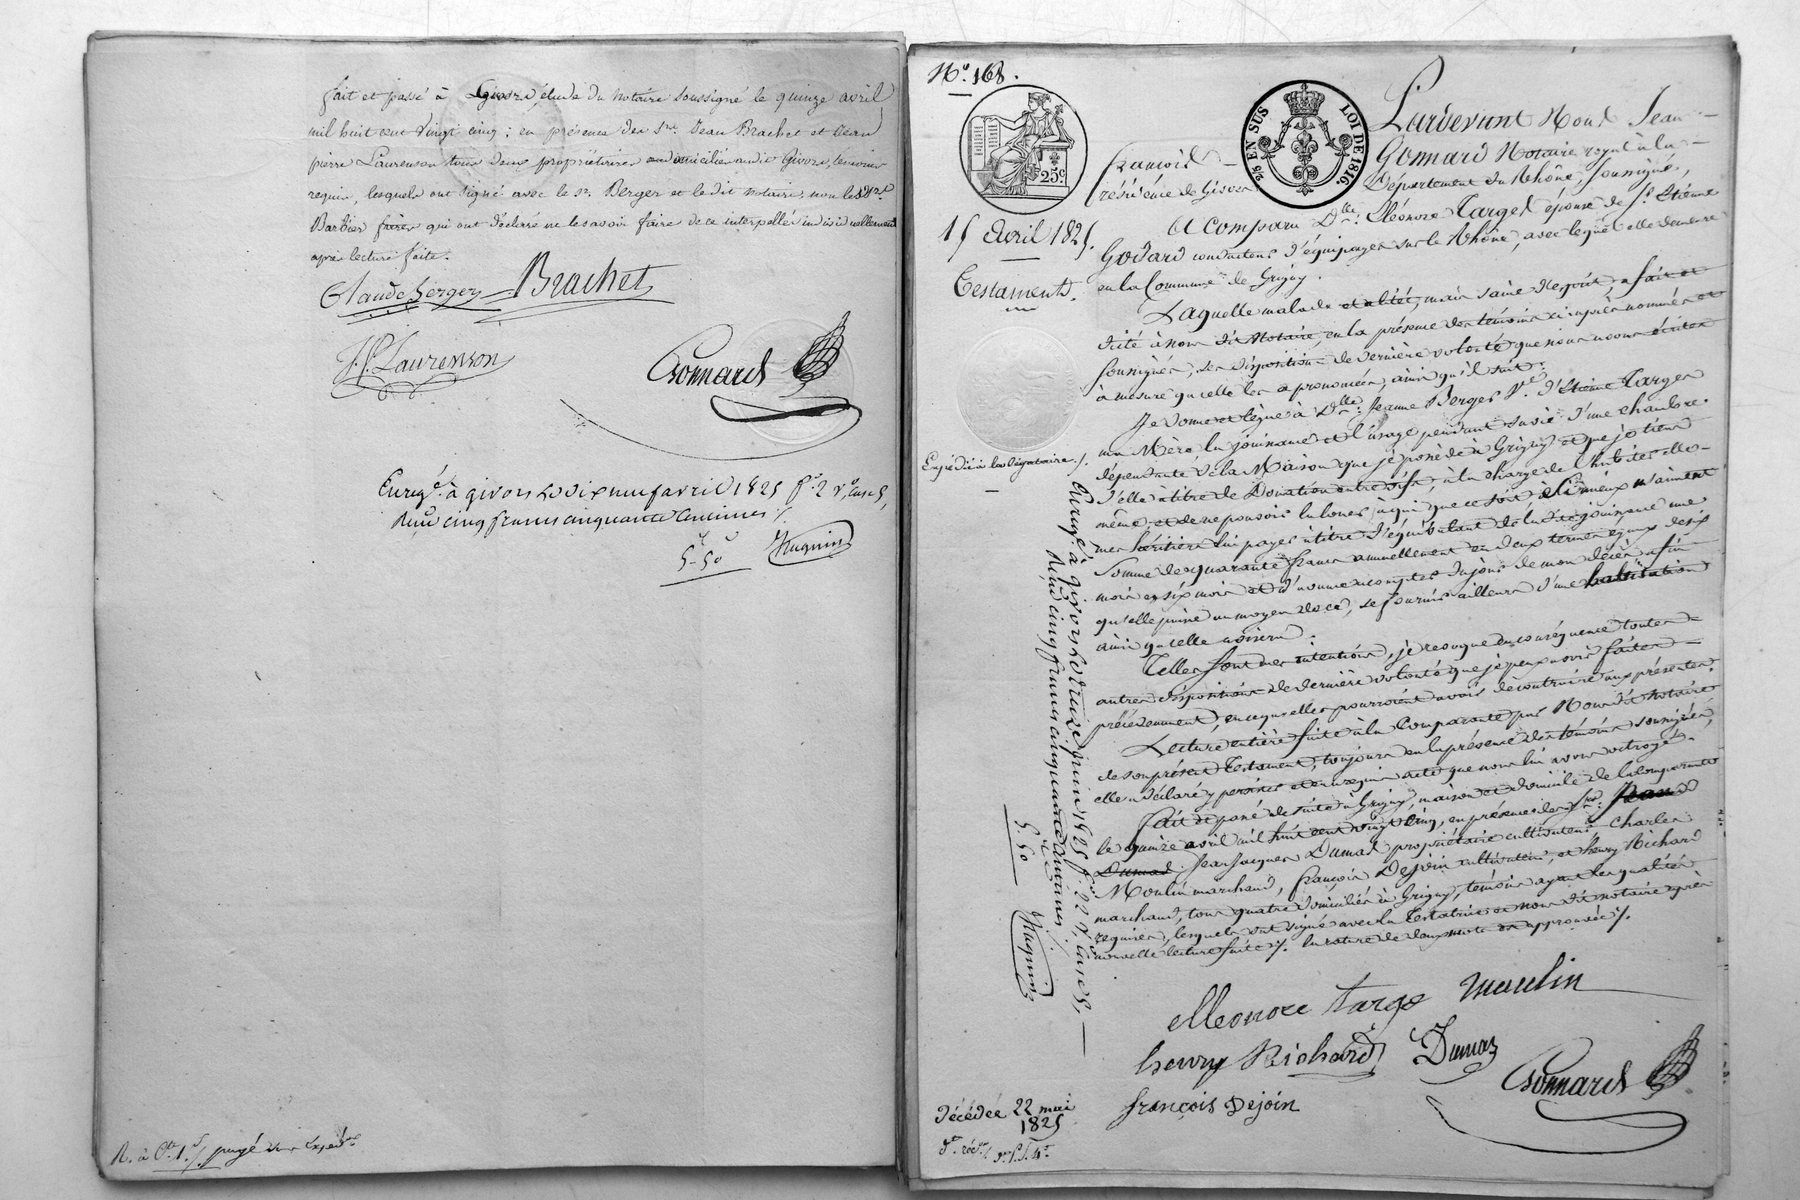 fait et passé à Givors, étude du notaire soussigné le quinze avril
mil huit cent vingt cinq; en présence des Srs. Jean Brachet et Jean
pierre Laurenson tous deux propriétaires domiciliés audit Givors, témoins
requis, lesquels ont signé avec le sr. Berger et le dit notaire, non les Srs.
Barbier frères qui ont déclaré ne le savoir faire de ce interpellés individuellement
après lecture faite.
Claude Berger Brachet
J.P. Laurenson
Gonnard
Enregé. à givors le dix neuf avril 1825 fo. 2 vo. case 5,
Reçu cinq francs cinquante centimes
5f 50c
Huguin
No. 168.
25c.
25c EN SUS LOI DE 1816.
Pardevant Nous Jean
françois Gonnard Notaire royal à la
résidence de Givors Département du Rhône, soussigné,
15 Avril 1825.
A comparu Dlle: Eléonore Targe épouse de Sr. Etienne
Godard conducteur d'équipages sur le Rhône, avec lequel elle demeure
en la Commune de Grigny.
Testament.
Laquelle malade et alitée, mais saine d'esprit, a fait et
dicté à nous dit Notaire, en la présence des témoins ci-après nommés et
soussignés, ses dispositions de dernière volonté que nous avons écrites
à mesure qu'elle les a prononcées, ainsi qu'il suit:
Je donne et lègue à Dlle: Jeanne Berger Ve. d'Etienne Targe
ma Mère la jouissance et l'usage pendant sa vie d'une chambre
Expédié à la légataire
dépendante de la Maison que je possède à Grigny et que je tiens
d'elle à titre de Donation entre vifs, à la charge de l'habiter elle-
même, et de ne pouvoir la louer à qui que ce soit; si mieux n'aiment
mes héritiers lui payer à titre d'équivalent de la dite jouissance une
somme de quarante francs annuellement en deux termes égaux de six
mois en six mois et d'avance à compter du jour de mon décès, afin
qu'elle puisse au moyen de ce, se fournir ailleurs d'une habitation
ainsi qu'elle avisera:
Telles sont mes intentions, je révoque en conséquence toutes
autres dispositions de dernière volonté que je peux avoir faites
précédemment, en ce qu'elles pourroient avoir de contraire aux présentes.
Lecture entière faite à la Comparante par Nous dit notaire
de son présent Testament, toujours en la présence des témoins soussignés,
elle a déclaré y persister et en a requis acte que nous lui avons octroyé.
Fait et passé de suite à Grigny, maison et domicile de la comparante
le quinze avril mil huit cent vingt cinq, en présence des Srs: Jean
Dumas Jean Jacques Dumas propriétaire cultivateur, Charles
Moulin marchand, françois Dejoin cultivateur, et henry Richard
marchand, tous quatre domiciliés à Grigny, témoins ayant les qualités
requises, lesquels ont signé avec la Testatrice et nous dit notaire après
nouvelle lecture faite. la rature de deux mots est approuvée.
Enregé. à givors le treize juin 1825 fo. 22 vo. case 5,
Reçu cinq francs cinquante centimes
5.50
Huguin
elleonore targe moulin
henry Richard Dumas
Gonnard
françois Dejoin
Décédée 22 mai
1825